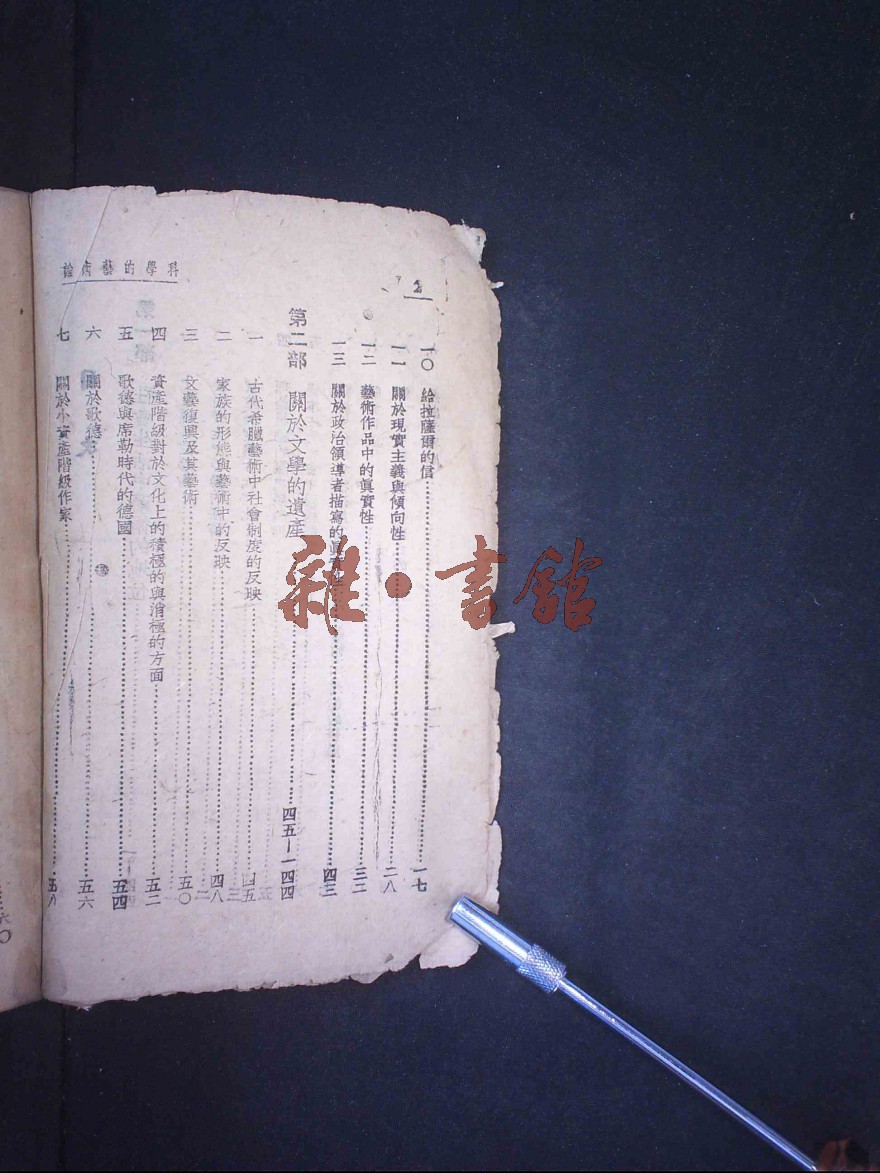 科學的藝術論
2
一〇 給拉薩爾的信 一七
一一 關於現實主義與傾向性 二八
一二 藝術作品中的眞實性 三二
一三 關於政治領導者描寫的眞實性 四三
第二部 關於文學的遺產 四五—一四四
一 古代希臘藝術中社會制度的反映 四五
二 家族的形態與藝術中的反映 四八
三 文藝復興及其藝術 五〇
四 資產階級對於文化上的積極的與消極的方面 五二
五 歌德與席勒時代的德國 五四
六 關於歌德 五六
七 關於小資產階級作家 五八
雜·書館